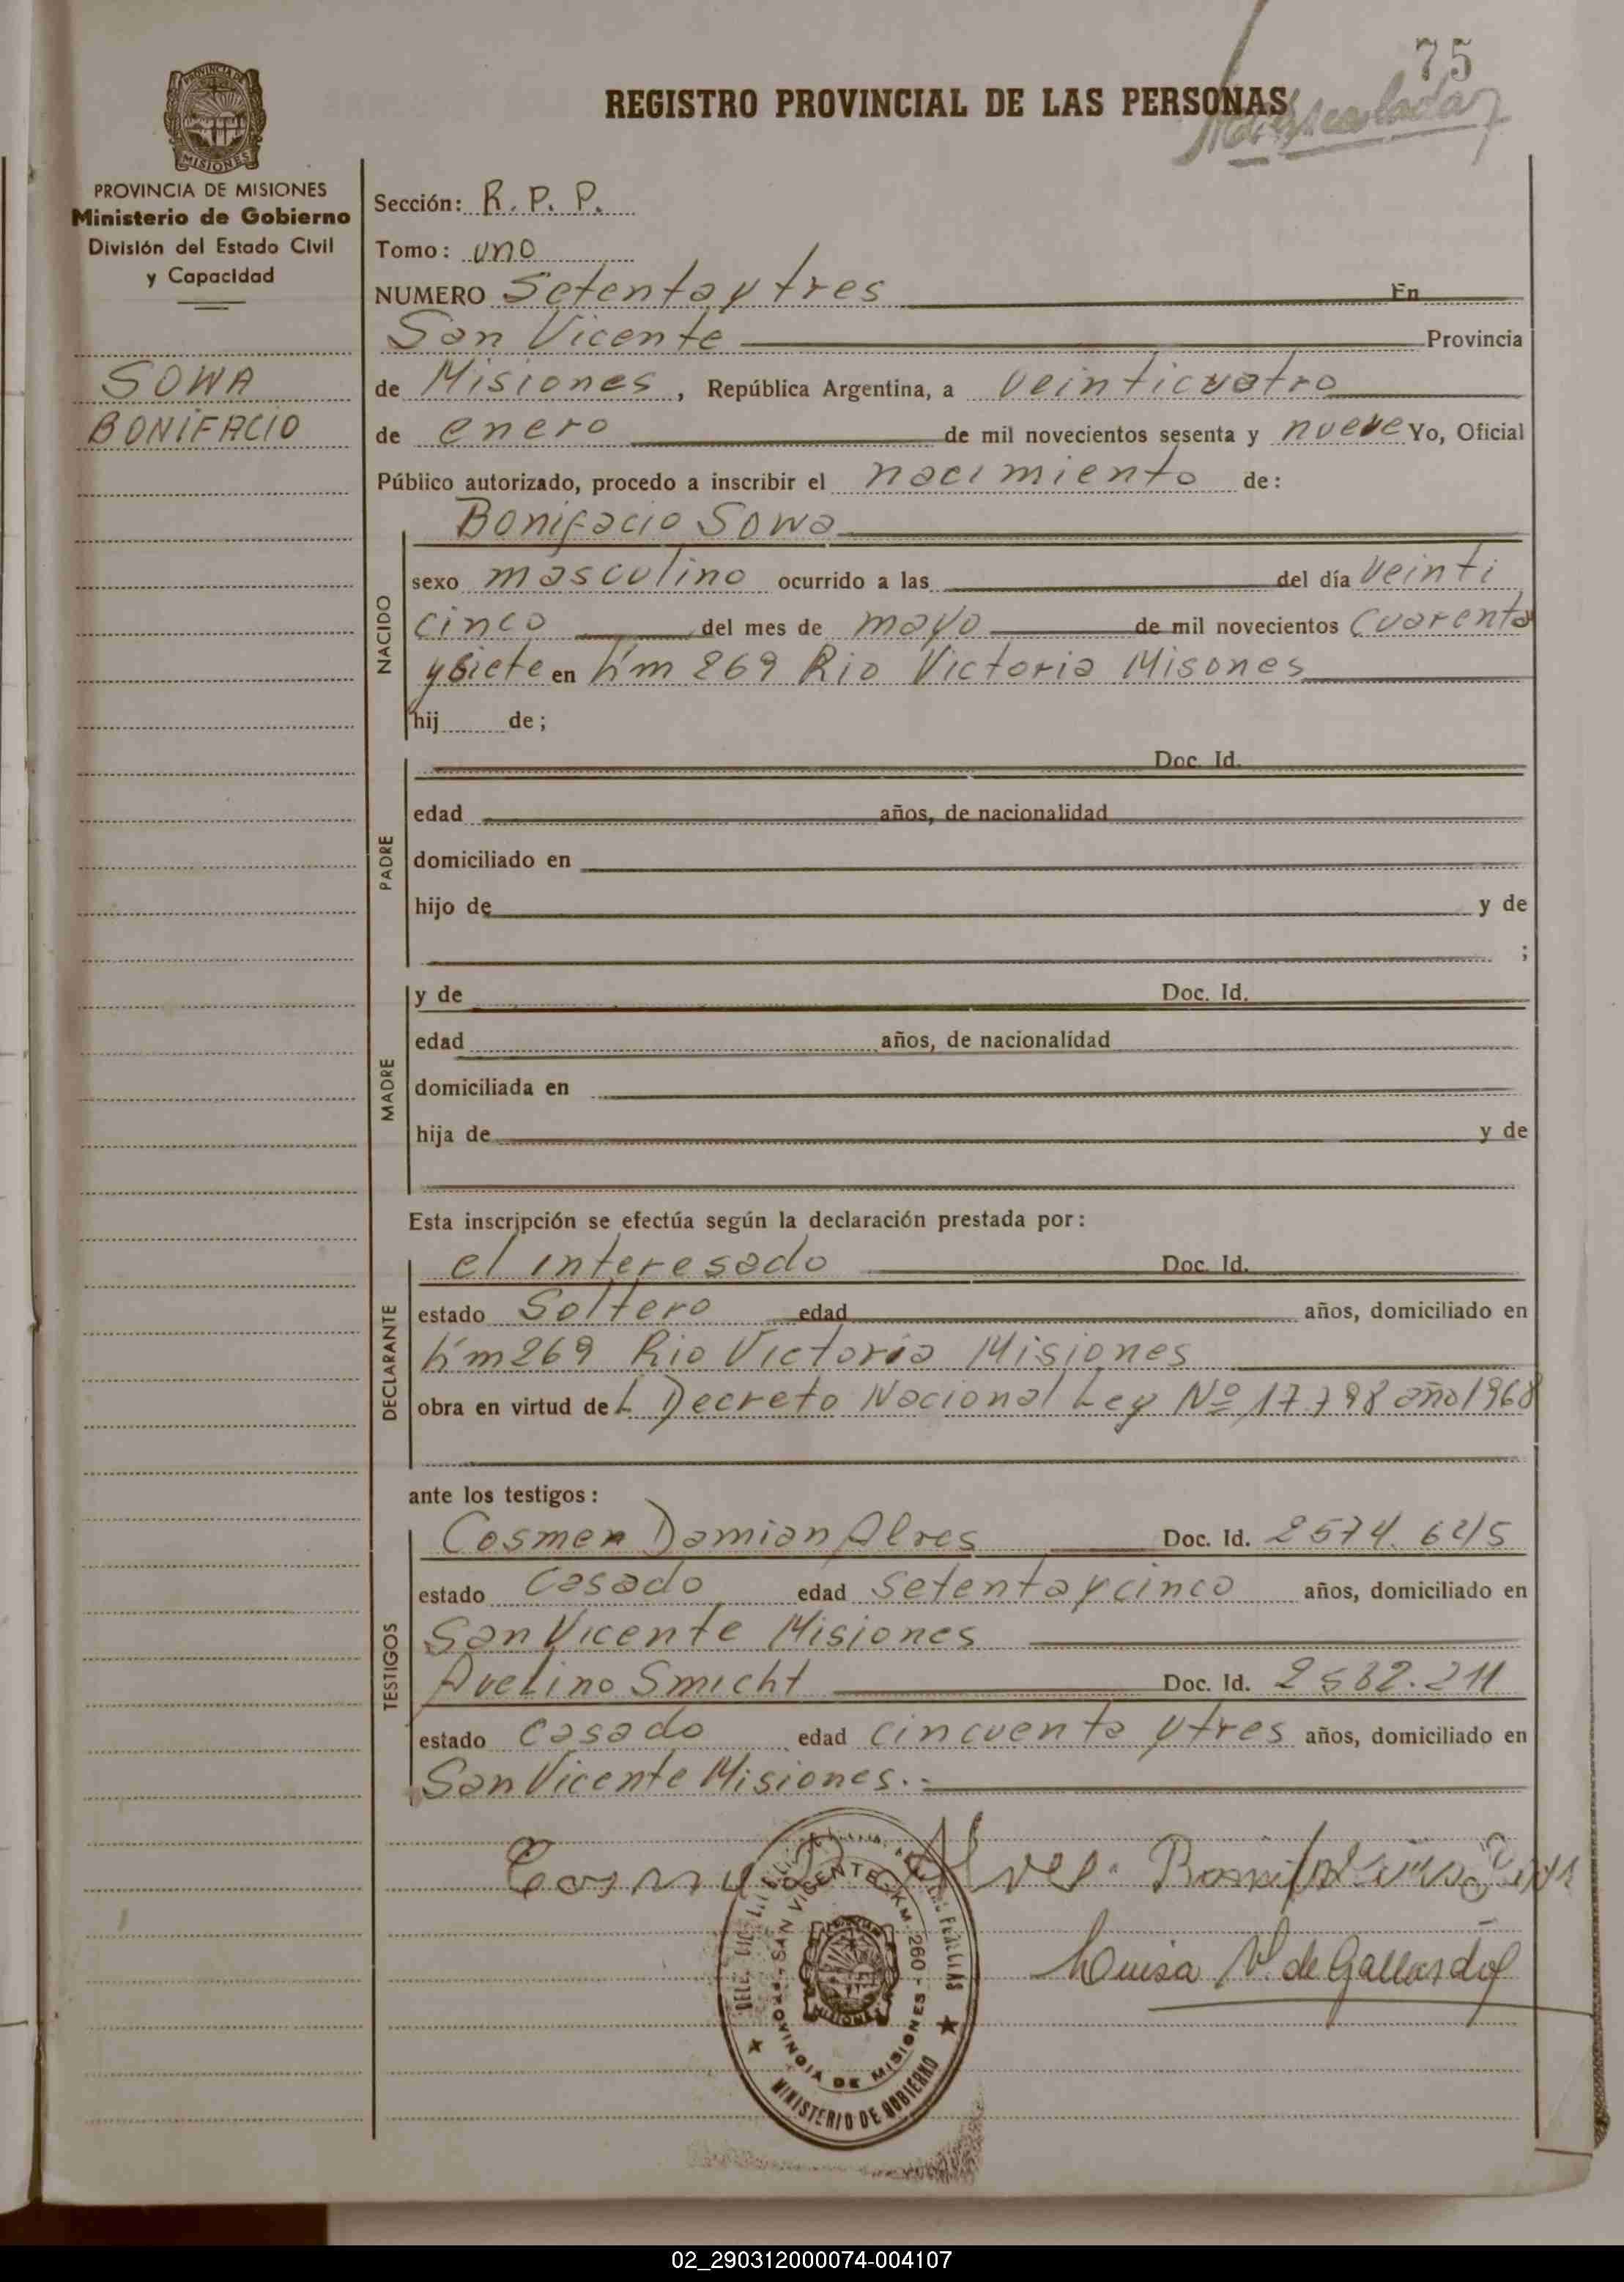 75
REGISTRO PROVINCIAL DE LAS PERSONAS
PROVINCIA DE MISIONES
Ministerio de Gobierno
División del Estado Civil
y Capacidad
SOWA
BONIFACIO
Sección: R. P. P.
Tomo: uno
NUMERO Setenta y tres En
San Vicente Provincia
de Misiones, República Argentina, a veinticuatro
de enero de mil novecientos sesenta y nueve Yo, Oficial
Público autorizado, procedo a inscribir el nacimiento de:
Bonifacio Sowa
NACIDO
sexo masculino ocurrido a las del día veinti
cinco del mes de mayo de mil novecientos cuarenta
y siete en Km 269 Rio Victoria Misones
hij de;
PADRE
Doc. Id.
edad años, de nacionalidad
domiciliado en
hijo de y de
;
MADRE
y de Doc. Id.
edad años, de nacionalidad
domiciliada en
hija de y de
Esta inscripción se efectúa según la declaración prestada por:
DECLARANTE
el interesado Doc. Id.
estado Soltero edad años, domiciliado en
Km 269 Rio Victoria Misiones
obra en virtud del Decreto Nacional Ley Nº 17798 año 1968
ante los testigos:
TESTIGOS
Cosmen Damian Alves Doc. Id. 2574.645
estado Casado edad setenta y cinco años, domiciliado en
San Vicente Misiones
Avelino Smicht Doc. Id.
estado Casado edad cincuenta y tres años, domiciliado en
San Vicente Misiones.=
Alves
Luisa V. de Gallardo
SAN VICENTE - KM. 260 -
PROVINCIA DE MISIONES
MINISTERIO DE GOBIERNO
02_290312000074-004107